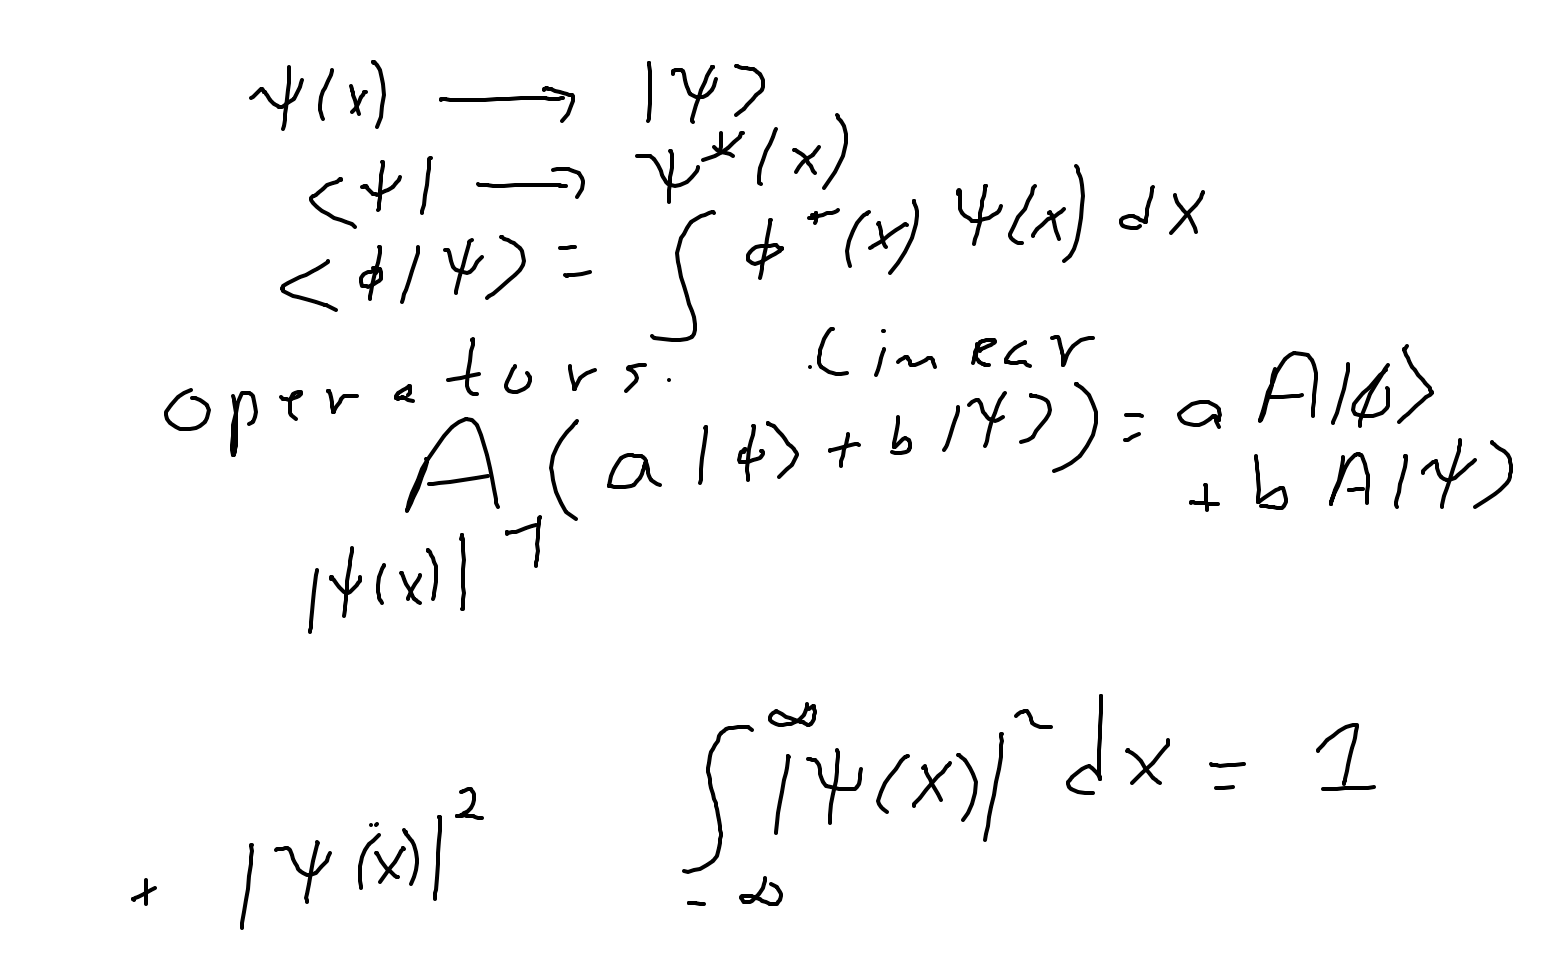 ψ(x) → |ψ>
<ψ| → ψ*(x)
<ϕ|ψ> = ∫ ϕ*(x) ψ(x) dx
operators. Linear
A(a|ϕ> + b|ψ>) = a A|ϕ>
+ b A|ψ>
|ψ(x)|
∫_{-∞}^{∞} |ψ(x)|² dx = 1
+ |ψ(x)|²